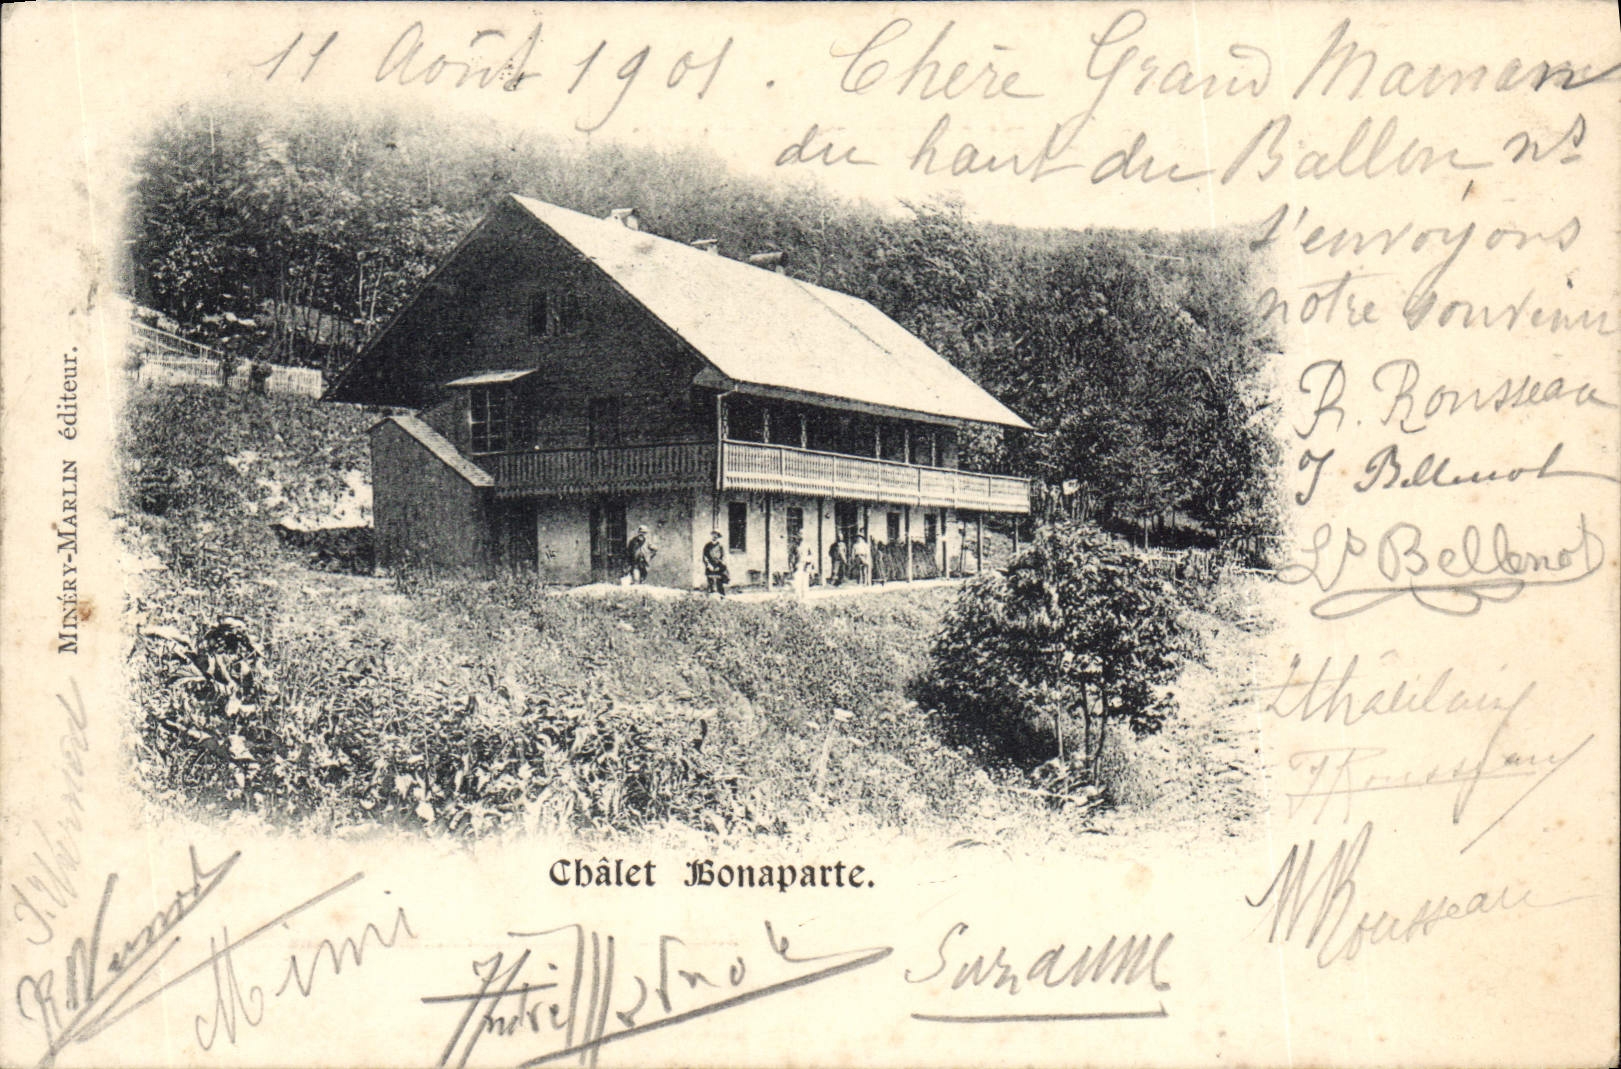 11 Août 1901. Chère Grand Maman
du haut du Ballon ns
t'envoyons
notre souvenir
R. Rousseau
J Bellenot
Ls Bellenot
Rousseau
M Rousseau
Suzanne
André
Mimi
R Vernot
J. Vernod
Châlet Bonaparte.
MINÉRY-MARLIN éditeur.